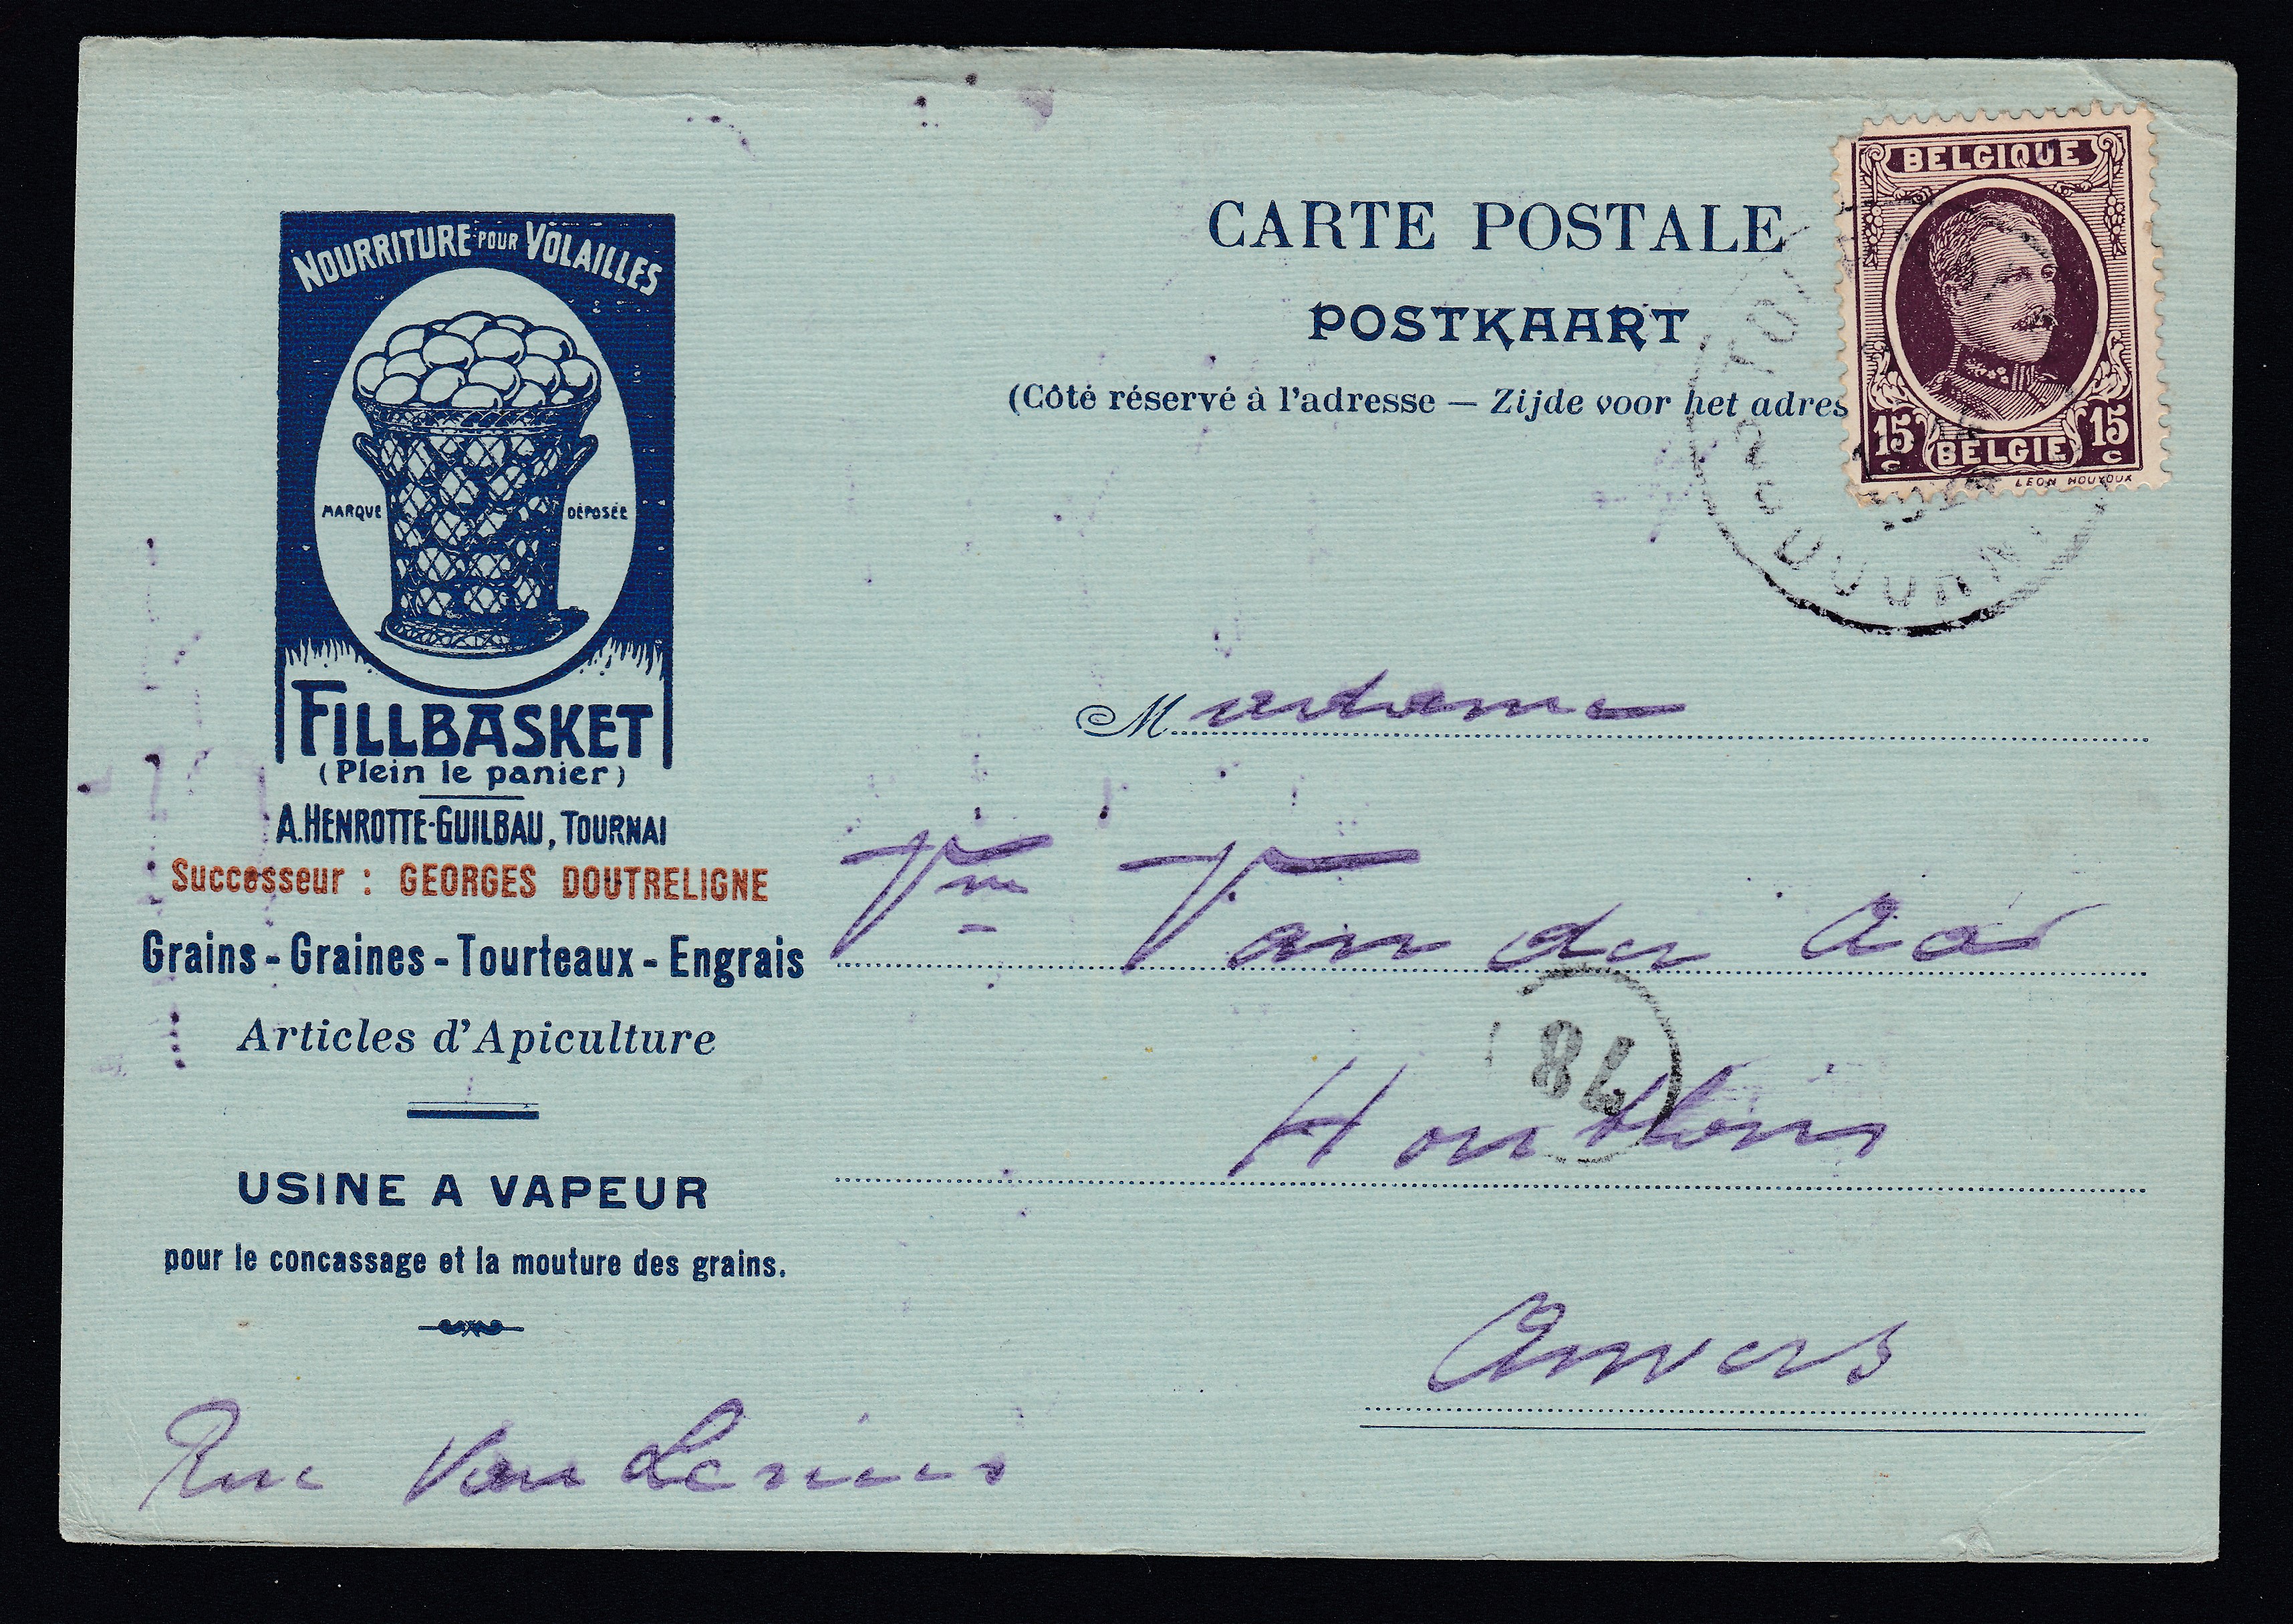 NOURRITURE POUR VOLAILLES
MARQUE DÉPOSÉE
FILLBASKET
(Plein le panier)
A. HENROTTE-GUILBAU, TOURNAI
Successeur : GEORGES DOUTRELIGNE
Grains - Graines - Tourteaux - Engrais
Articles d'Apiculture
USINE A VAPEUR
pour le concassage et la mouture des grains.
CARTE POSTALE
POSTKAART
(Côté réservé à l'adresse — Zijde voor het adres
BELGIQUE
15 c BELGIE 15 c
LEON HOUYOUX
Madame
Van der
84
Anvers
Rue